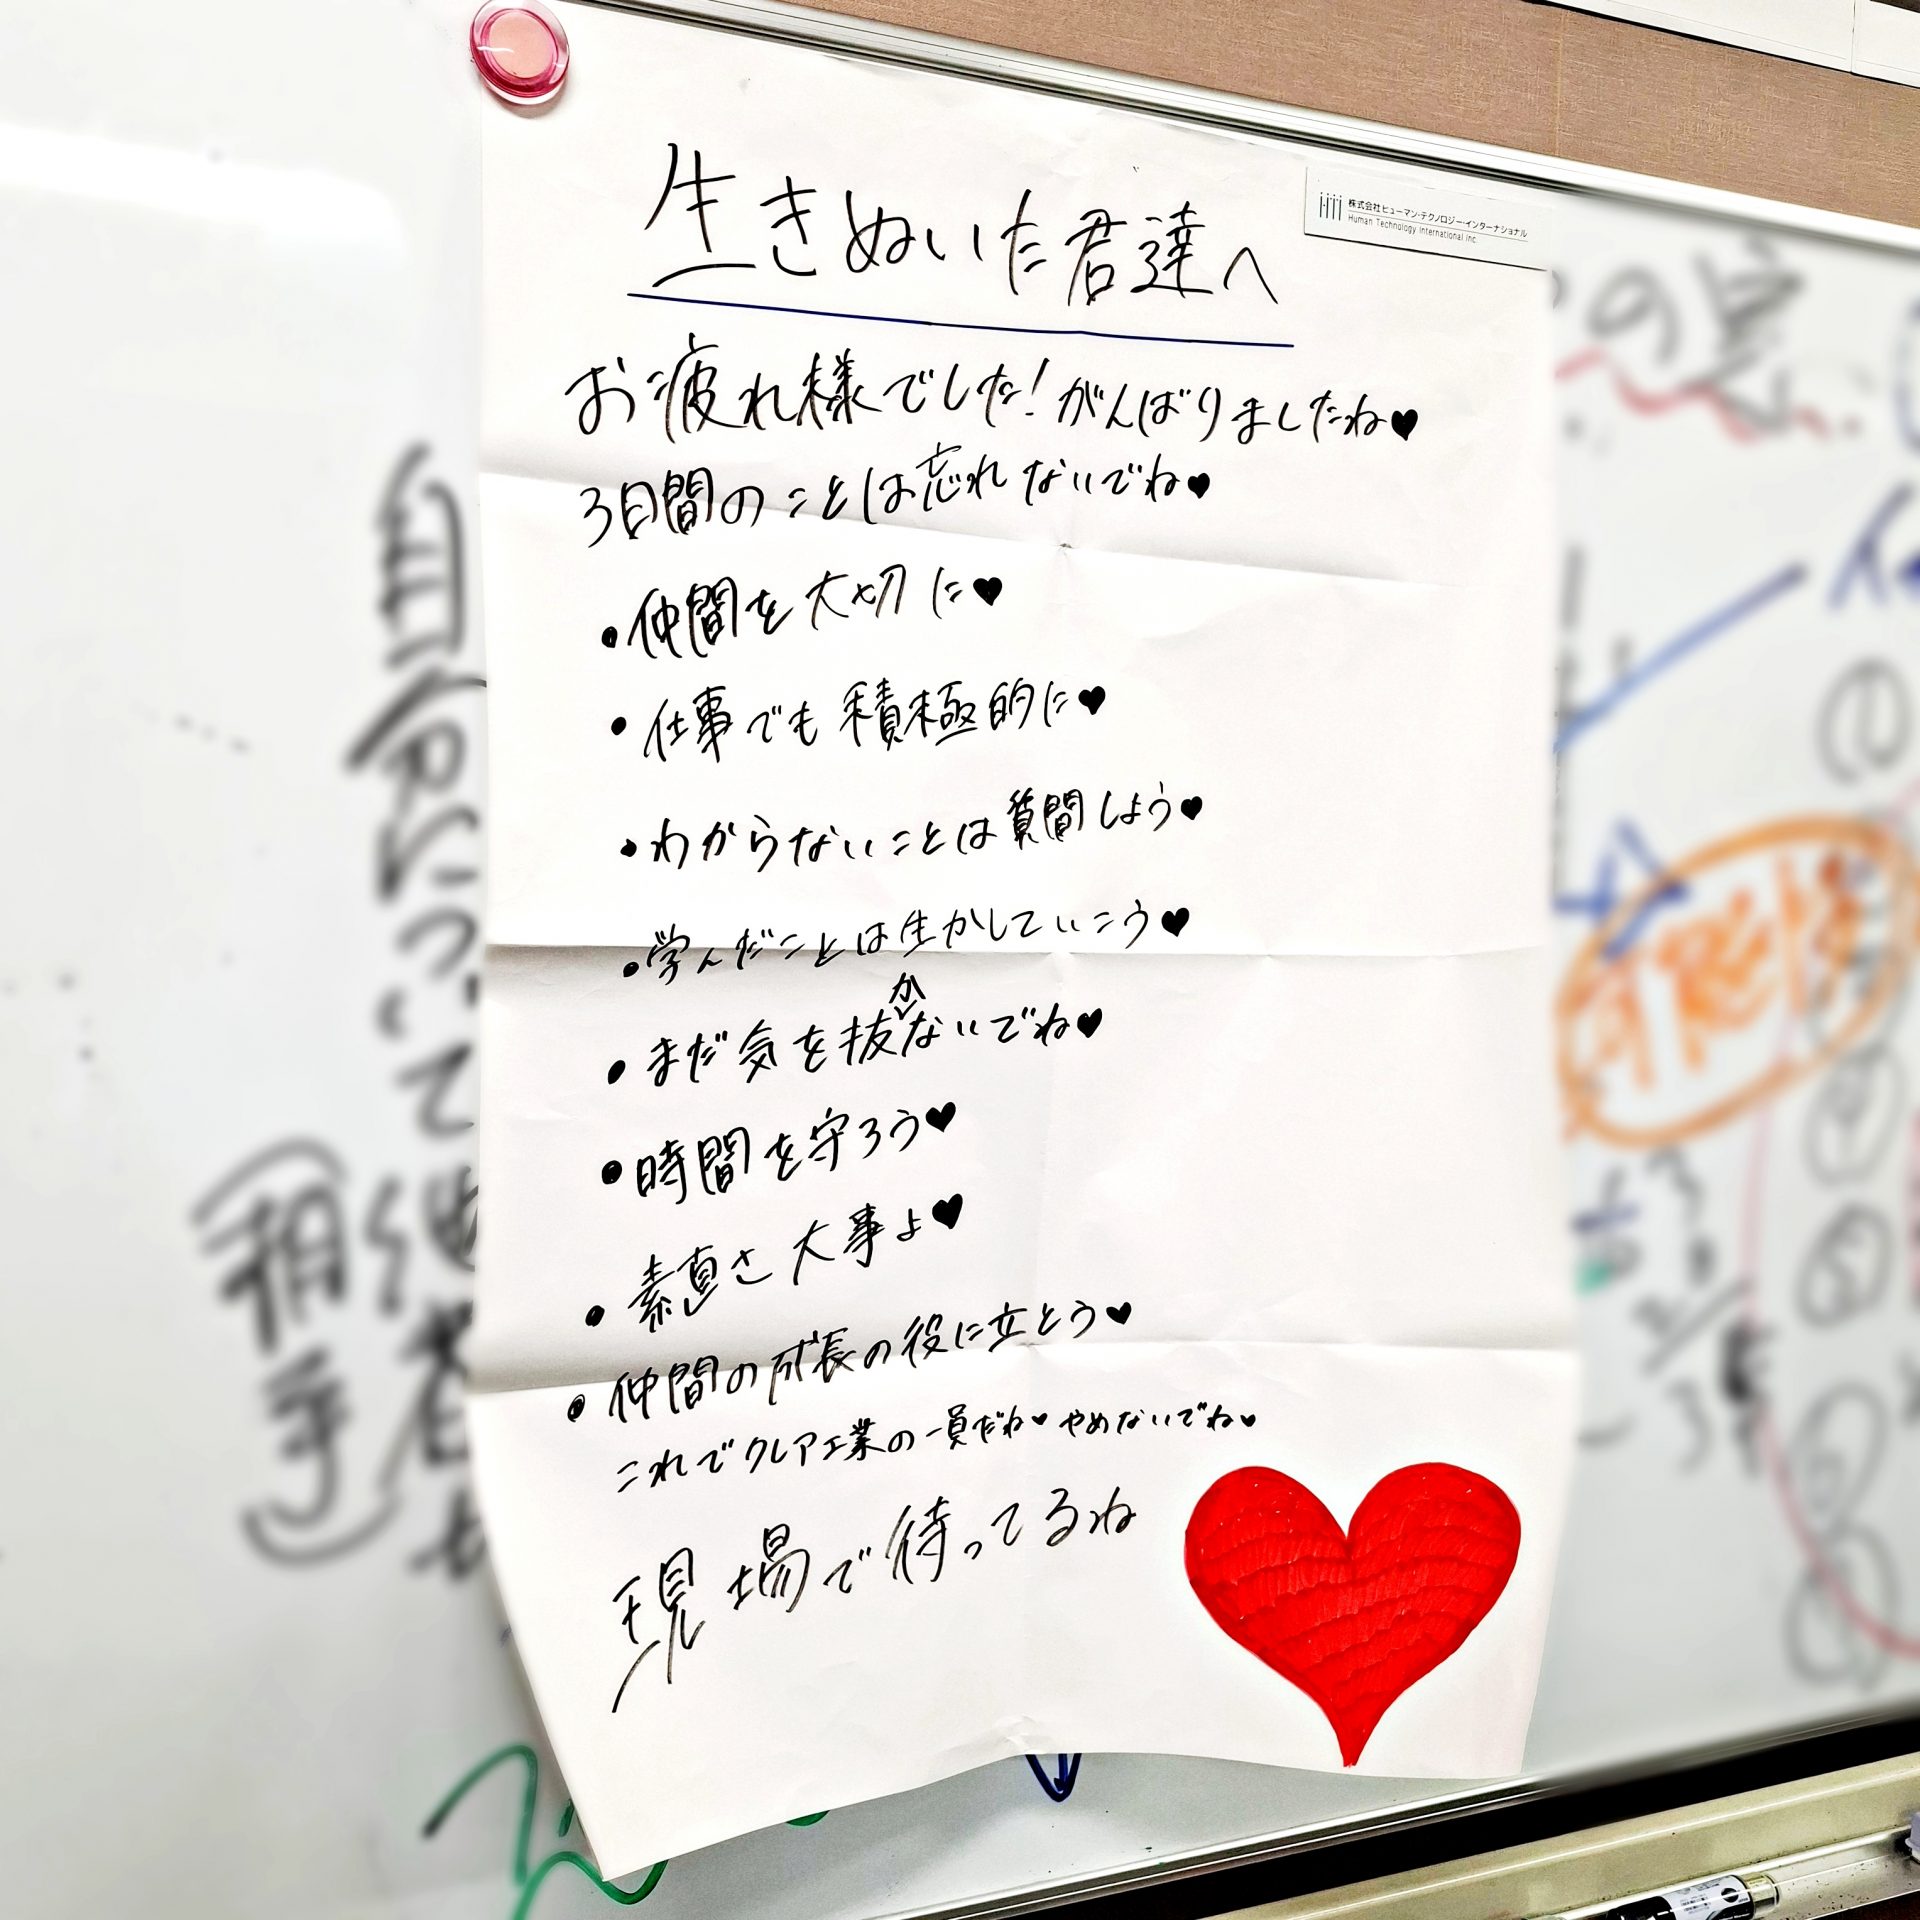 生きぬいた君達へ
株式会社ヒューマン・テクノロジー・インターナショナル
Human Technology International Inc.
お疲れ様でした!がんばりましたね♥
3日間のことは忘れないでね♥
・仲間を大切に♥
・仕事でも積極的に♥
・わからないことは質問しよう♥
・学んだことは生かしていこう♥
・まだ気を抜かないでね♥
・時間を守ろう♥
・素直さ大事よ♥
・仲間の成長の役に立とう♥
これでクレア工業の一員だね♥やめないでね♥
現場で待ってるね